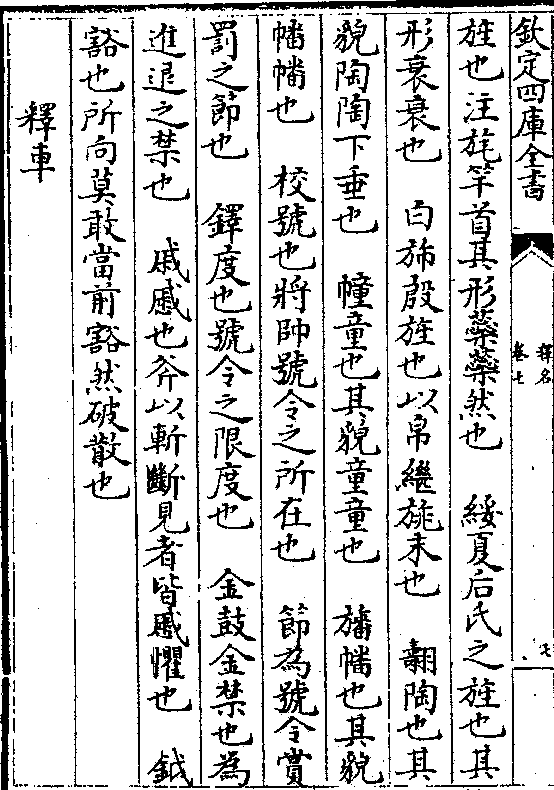 欽定四庫全書
釋名
卷七
七
旌也注旄竿首其形蘂蘂然也　綏夏后氏之旌也其
形衰衰也　白斾殷旌也以帛繼旐末也　翿陶也其
貌陶陶下垂也　幢童也其貌童童也　旛幡也其貌
幡幡也　校號也將帥號令之所在也　節為號令賞
罰之節也　鐸度也號令之限度也　金鼓金禁也為
進退之禁也　戚戚也斧以斬斷見者皆戚懼也　鉞
豁也所向莫敢當前豁然破散也
釋車